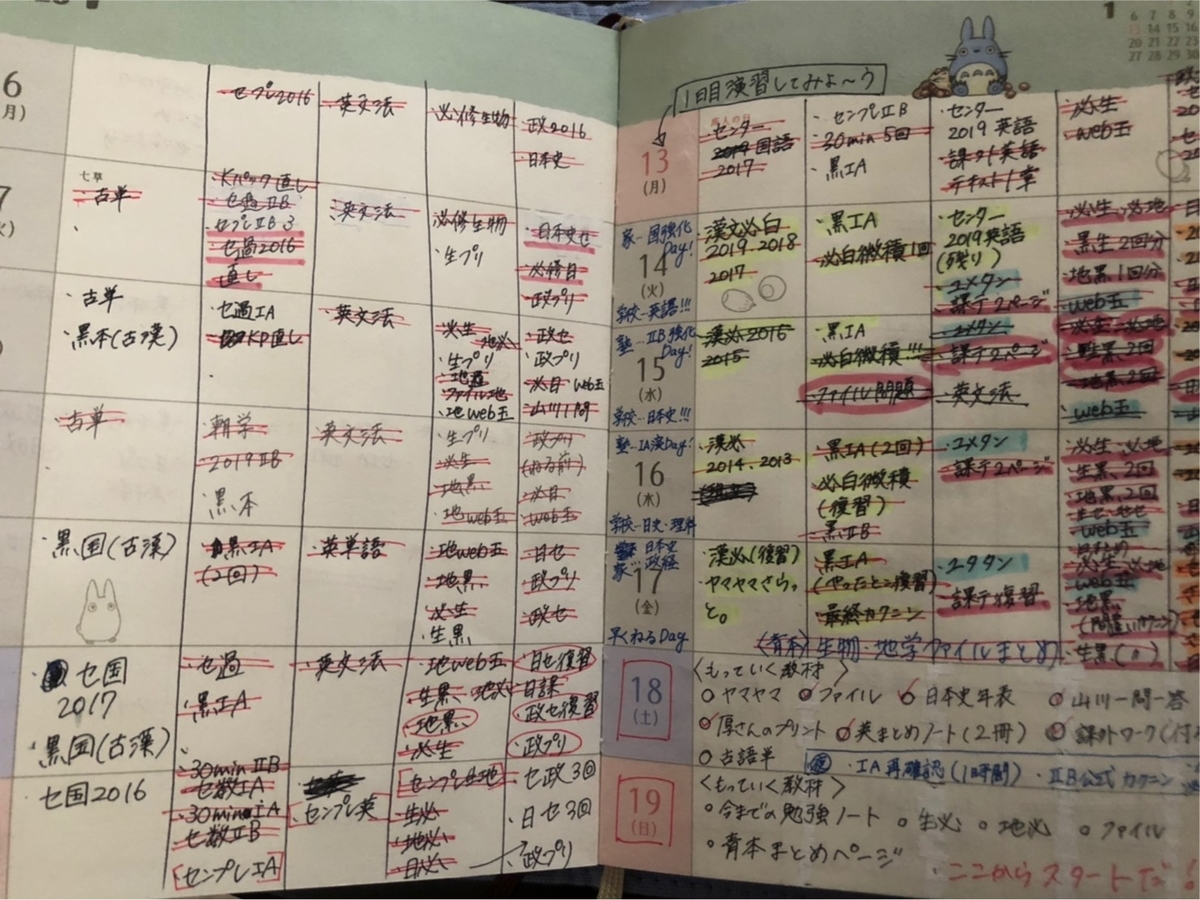 6
(月)
・センプレ2016
・英文法
・必修生物
・政2016
・日本史
7
七草
・古単
・Kパック直し
・セ過ⅡB
・センプレⅡB 3
・セ過2016
直し
・英文法
・必修生物
・生プリ
・日本史セ
・必修日
・政プリ
・古単
・黒本(古漢)
・セ過ⅠA
KP直し
・英文法
・必生
・生プリ
・ファイル地
・地web玉
・政セ
・政プリ
・必日 web玉
・山川一問
・古単
・朝学
・2019ⅡB
・黒本
・英文法
・生プリ
・必生
・地黒
・地web玉
・政プリ
(ねる前)
・必日
・web玉
・黒国(古漢)
・黒ⅠA
(2回)
・英単語
・地web玉
・地黒
・必生
・生黒
・日セ
・政プリ
・政セ
セ国
2017
・黒国(古漢)
・セ過
・黒ⅠA
・英文法
・地web玉
・生黒 地必
・地黒
・必生
・日セ復習
・日課
・政セ復習
・政プリ
・セ国2016
・30minⅡB
・セ数ⅠA
・30minⅠA
・セ数ⅡB
・センプレⅠA
・センプレ英
・センプレ生地
・生必
・地必
・日必
・セ政3回
・日セ3回
・政プリ
1
6 7 8 9
13 14 15 16
20 21 22 23
27 28 29 30
1日目演習してみよ〜う
13
(月)
成人の日
・センター
2019 国語
2017
・センプレⅡB
・30min 5回
・黒ⅠA
・センター
2019 英語
・課外英語
テキスト1章
・必生
・web玉
家…国強化
Day!
14
(火)
学校…英語!!!
・漢文必白
2019.2018
2017
・黒ⅠA
・必白微積1回
・センター
2019英語
(残り)
・ユメタン
・課テ2ページ
・必生、必地
・黒生2回分
・地黒1回分
・web玉
塾…ⅡB強化
Day!
15
(水)
学校…日本史!!!
・漢必2016
2015
・黒ⅠA
・必白微積!!!
・ファイル問題
・ユメタン
・課テ2ページ
・英文法
・必生、必地
・生黒2回
・地黒2回
・web玉
塾…ⅠA漢Day!
16
(木)
学校…日史・理科
・漢必
2014.2013
・黒ⅠA(2回)
・必白微積
(復習)
・黒ⅡB
・ユメタン
・課テ2ページ
・必生、必地
・生黒2回
・地黒2回
・web玉
日本史
家…政経
17
(金)
早くねるDay
・漢必(復習)
・ヤマヤマさらっ
と。
・黒ⅠA
(やったとこ復習)
・最終カクニン
・ユメタン
・課テ復習
・必生、必地
・web玉
・地黒
(間違いカクニン)
・生黒(〃)
(青本)生物・地学ファイルまとめ!
18
(土)
〈もっていく教材〉
○ヤマヤマ ○ファイル ○日本史年表 ○山川一問一答
○厚さんのプリント ○英まとめノート(2冊) ○課外ワーク
○古語単
夜 ・ⅠA再確認(1時間) ・ⅡB公式カクニン
19
(日)
〈もっていく教材〉
○今までの勉強ノート ○生必 ○地必 ○ファイル
○青本まとめページ
ここからスタートだ!